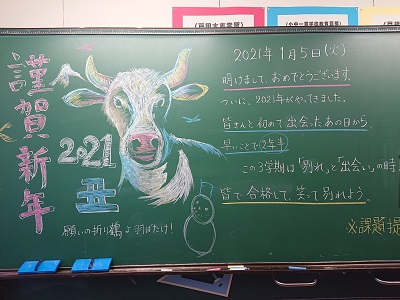 謹賀新年
2021
丑
願いの折り鶴よ羽ばたけ！
2021年1月5日(火)
明けまして、おめでとうございます。
ついに、2021年がやってきました。
皆さんと初めて出会ったあの日から、
早いことで12年半
この3学期は「別れ」と「出会い」の時
皆で合格して、笑って別れよう
※課題提